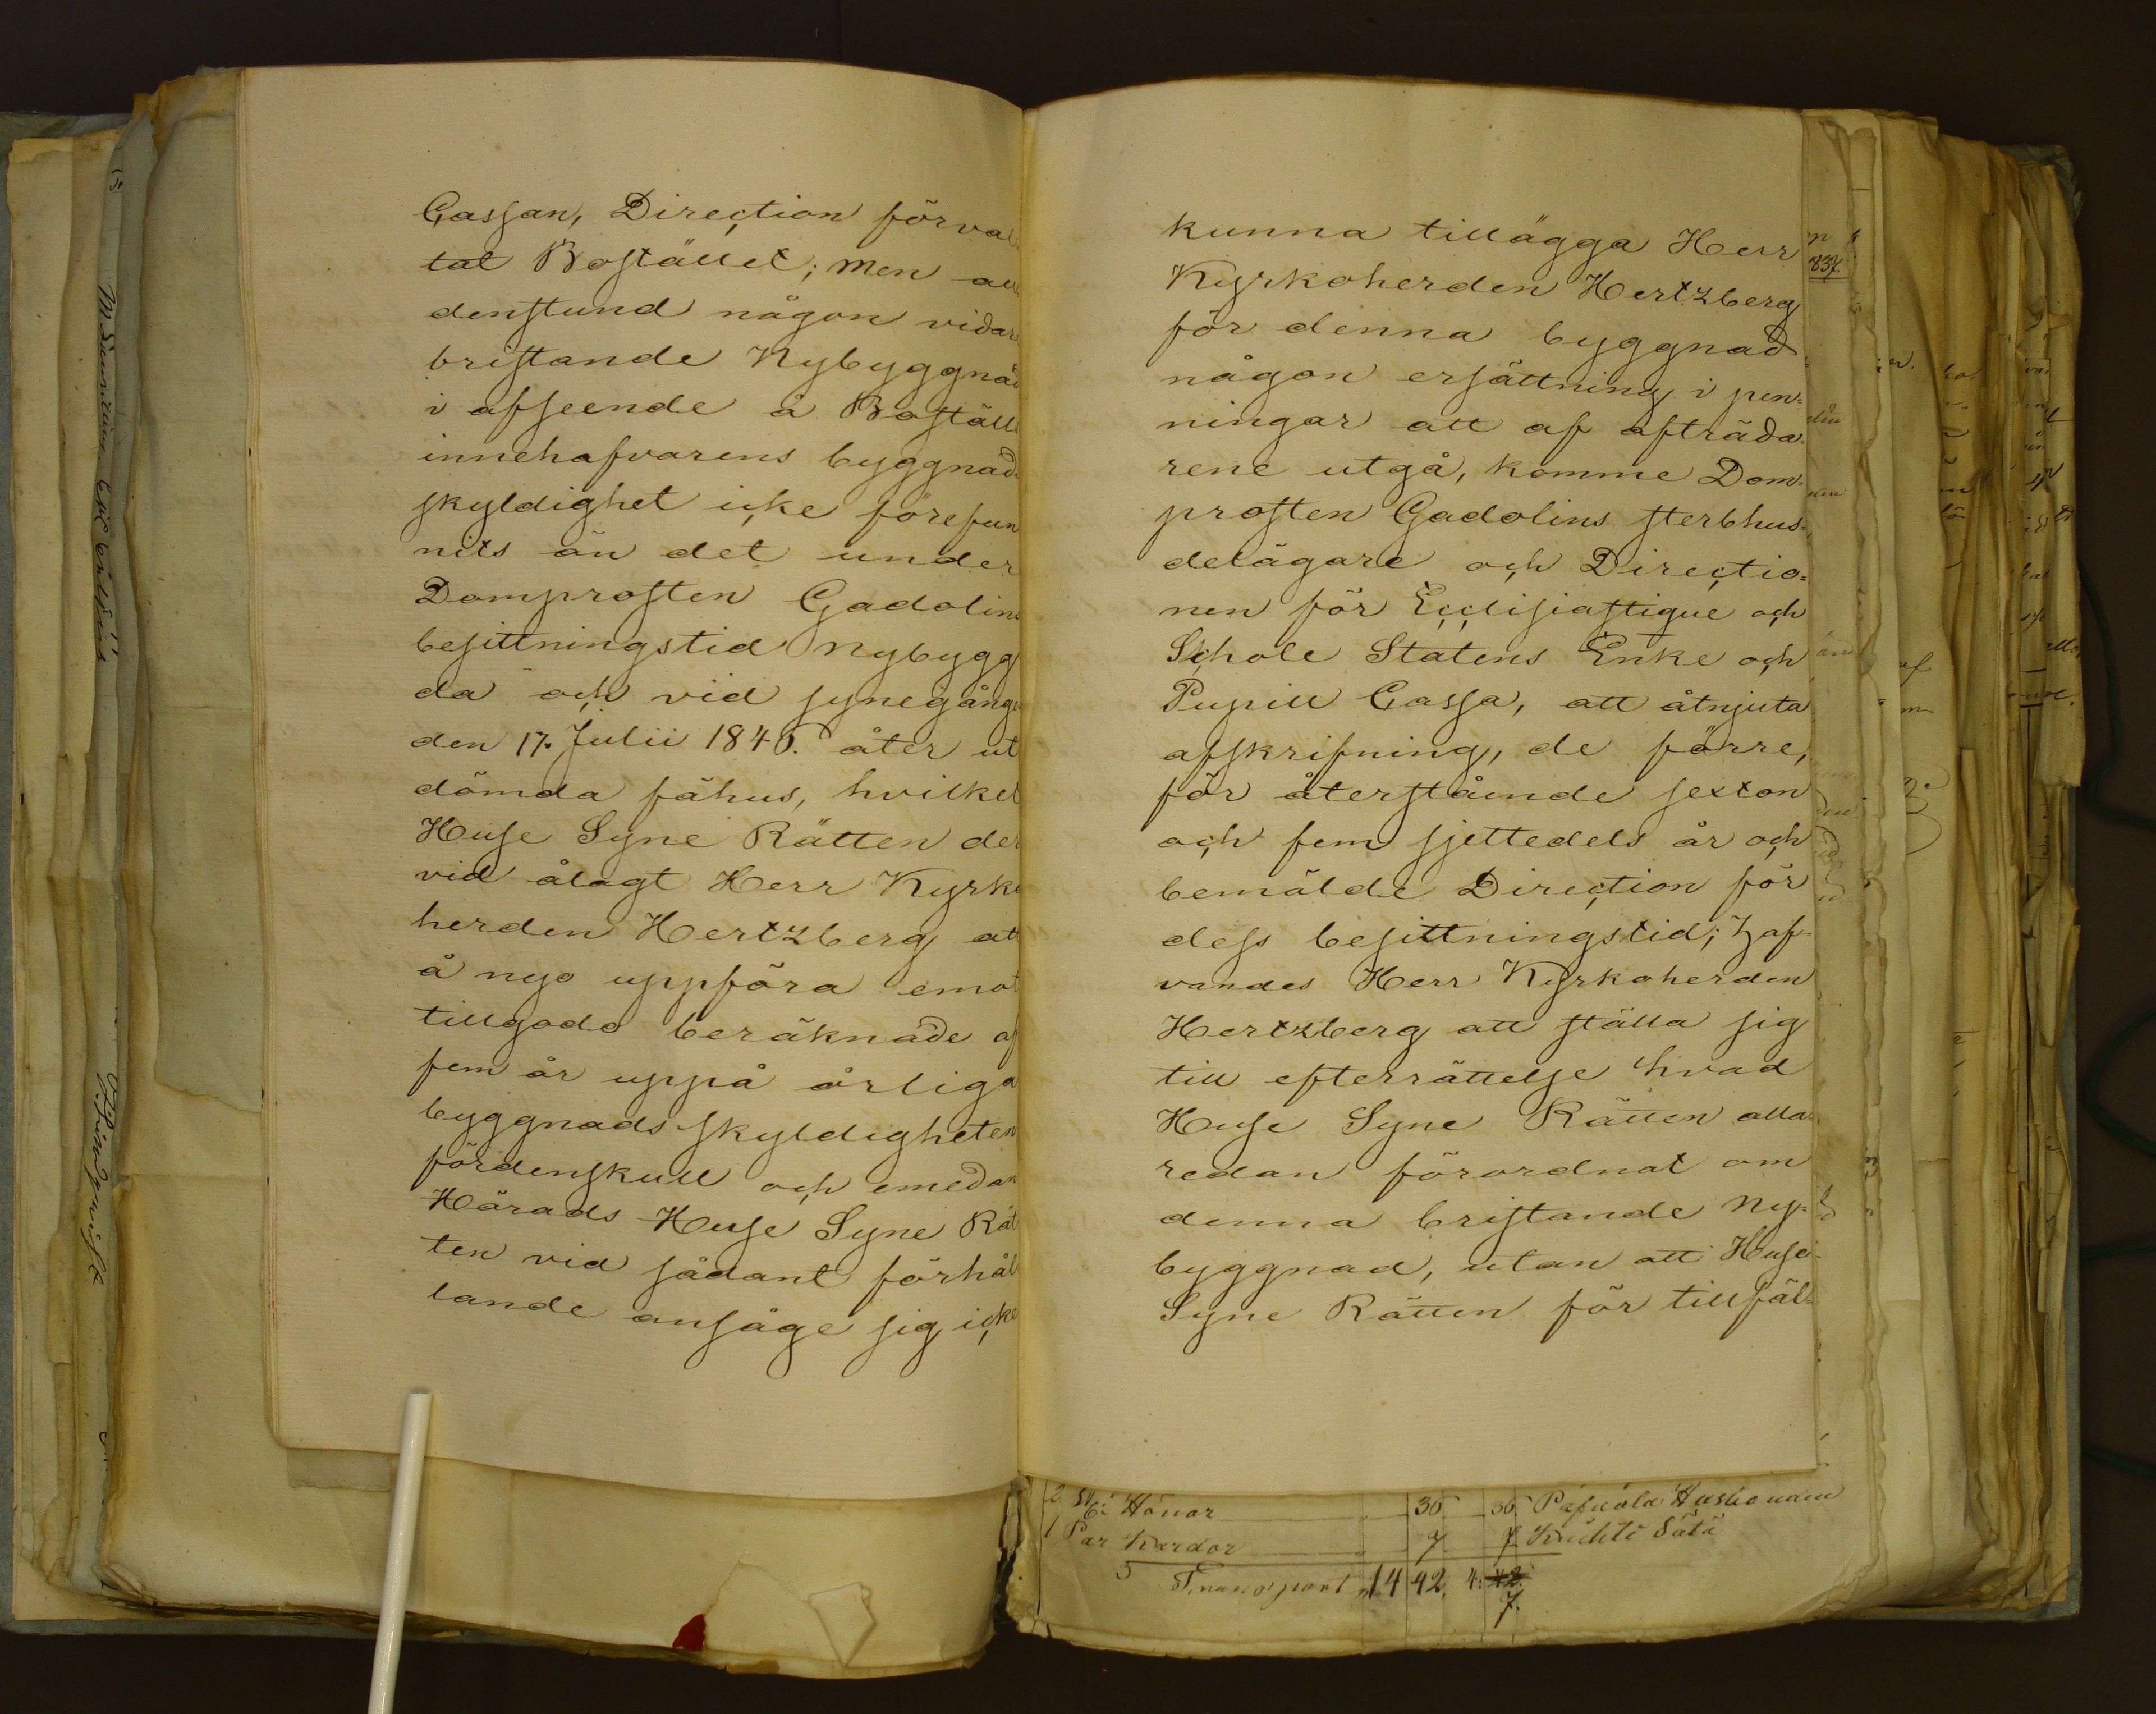 Cassan, Direction förval
tat Bostället; men all
denstund någon vidare
bristande Nybyggnad
i afseende å Boställ
innehafvarens byggnads
skyldighet icke förefun
nits än det under
Domprosten Gadolins
besittningstid nybygg
da och vid synegången
den 17. Julii 1846. åter ut
dömda fähus, hvilket
Huse Syne Rätten der
vid ålagt Herr Kyrko
herden Hertzberg att
å nyo uppföra emot
tillgodo beräknade af
fem år uppå årliga
byggnads skyldigheten
fördenskull och emedan
Härads Huse Syne Rät
ten vid sådant förhål
lande ansåge sig icke
kunna tillägga Herr
Kyrkoherden Hertzberg
för denna byggnad
någon ersättning i pen-
ningar att af afträda-
rene utgå, komme Dom-
prosten Gadolins sterbhus-
delägare och Directio-
nen för Ecclisiastique och
Schole Statens Enke och
Pupill Cassa, att åtnjuta
afskrifning, de förre,
för återstående sexton
och fem sjettedels år och
bemälde Direction för
dess besittningstid; haf-
vandes Herr Kyrkoherden
Hertzberg att ställa sig
till efterrättelse hvad
Huse Syne Rätten alla
redan förordnat om
denna bristande Ny-
byggnad, utan att Huse-
Syne Rätten för tillfäl-
2 St: Hönor 36 36
1 Par Kardor 7 7
Transport 14 42 4: 42.
7.